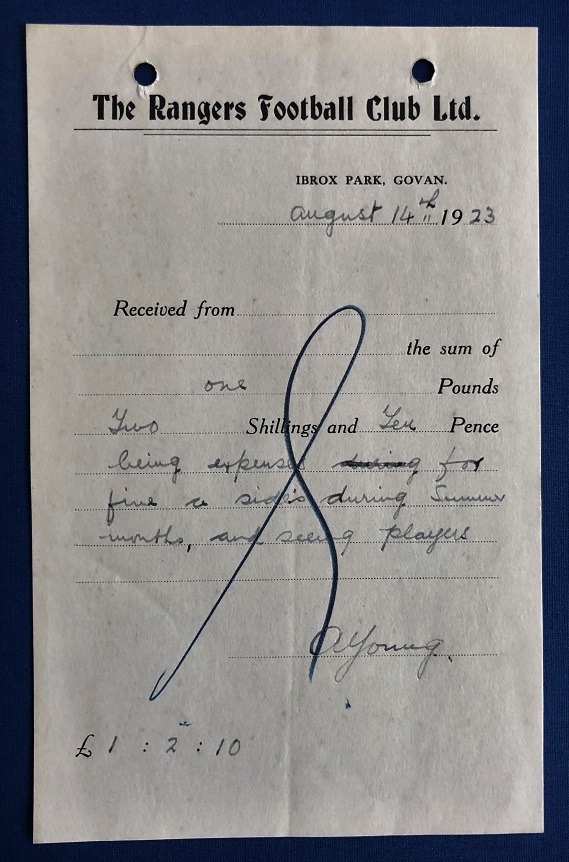 The Rangers Football Club Ltd.
IBROX PARK, GOVAN.
August 14th 1923
Received from
the sum of
one Pounds
Two Shillings and Ten Pence
being expenses during for
five a sides during Summer
months, and seeing players
A Young.
£ 1 : 2 : 10